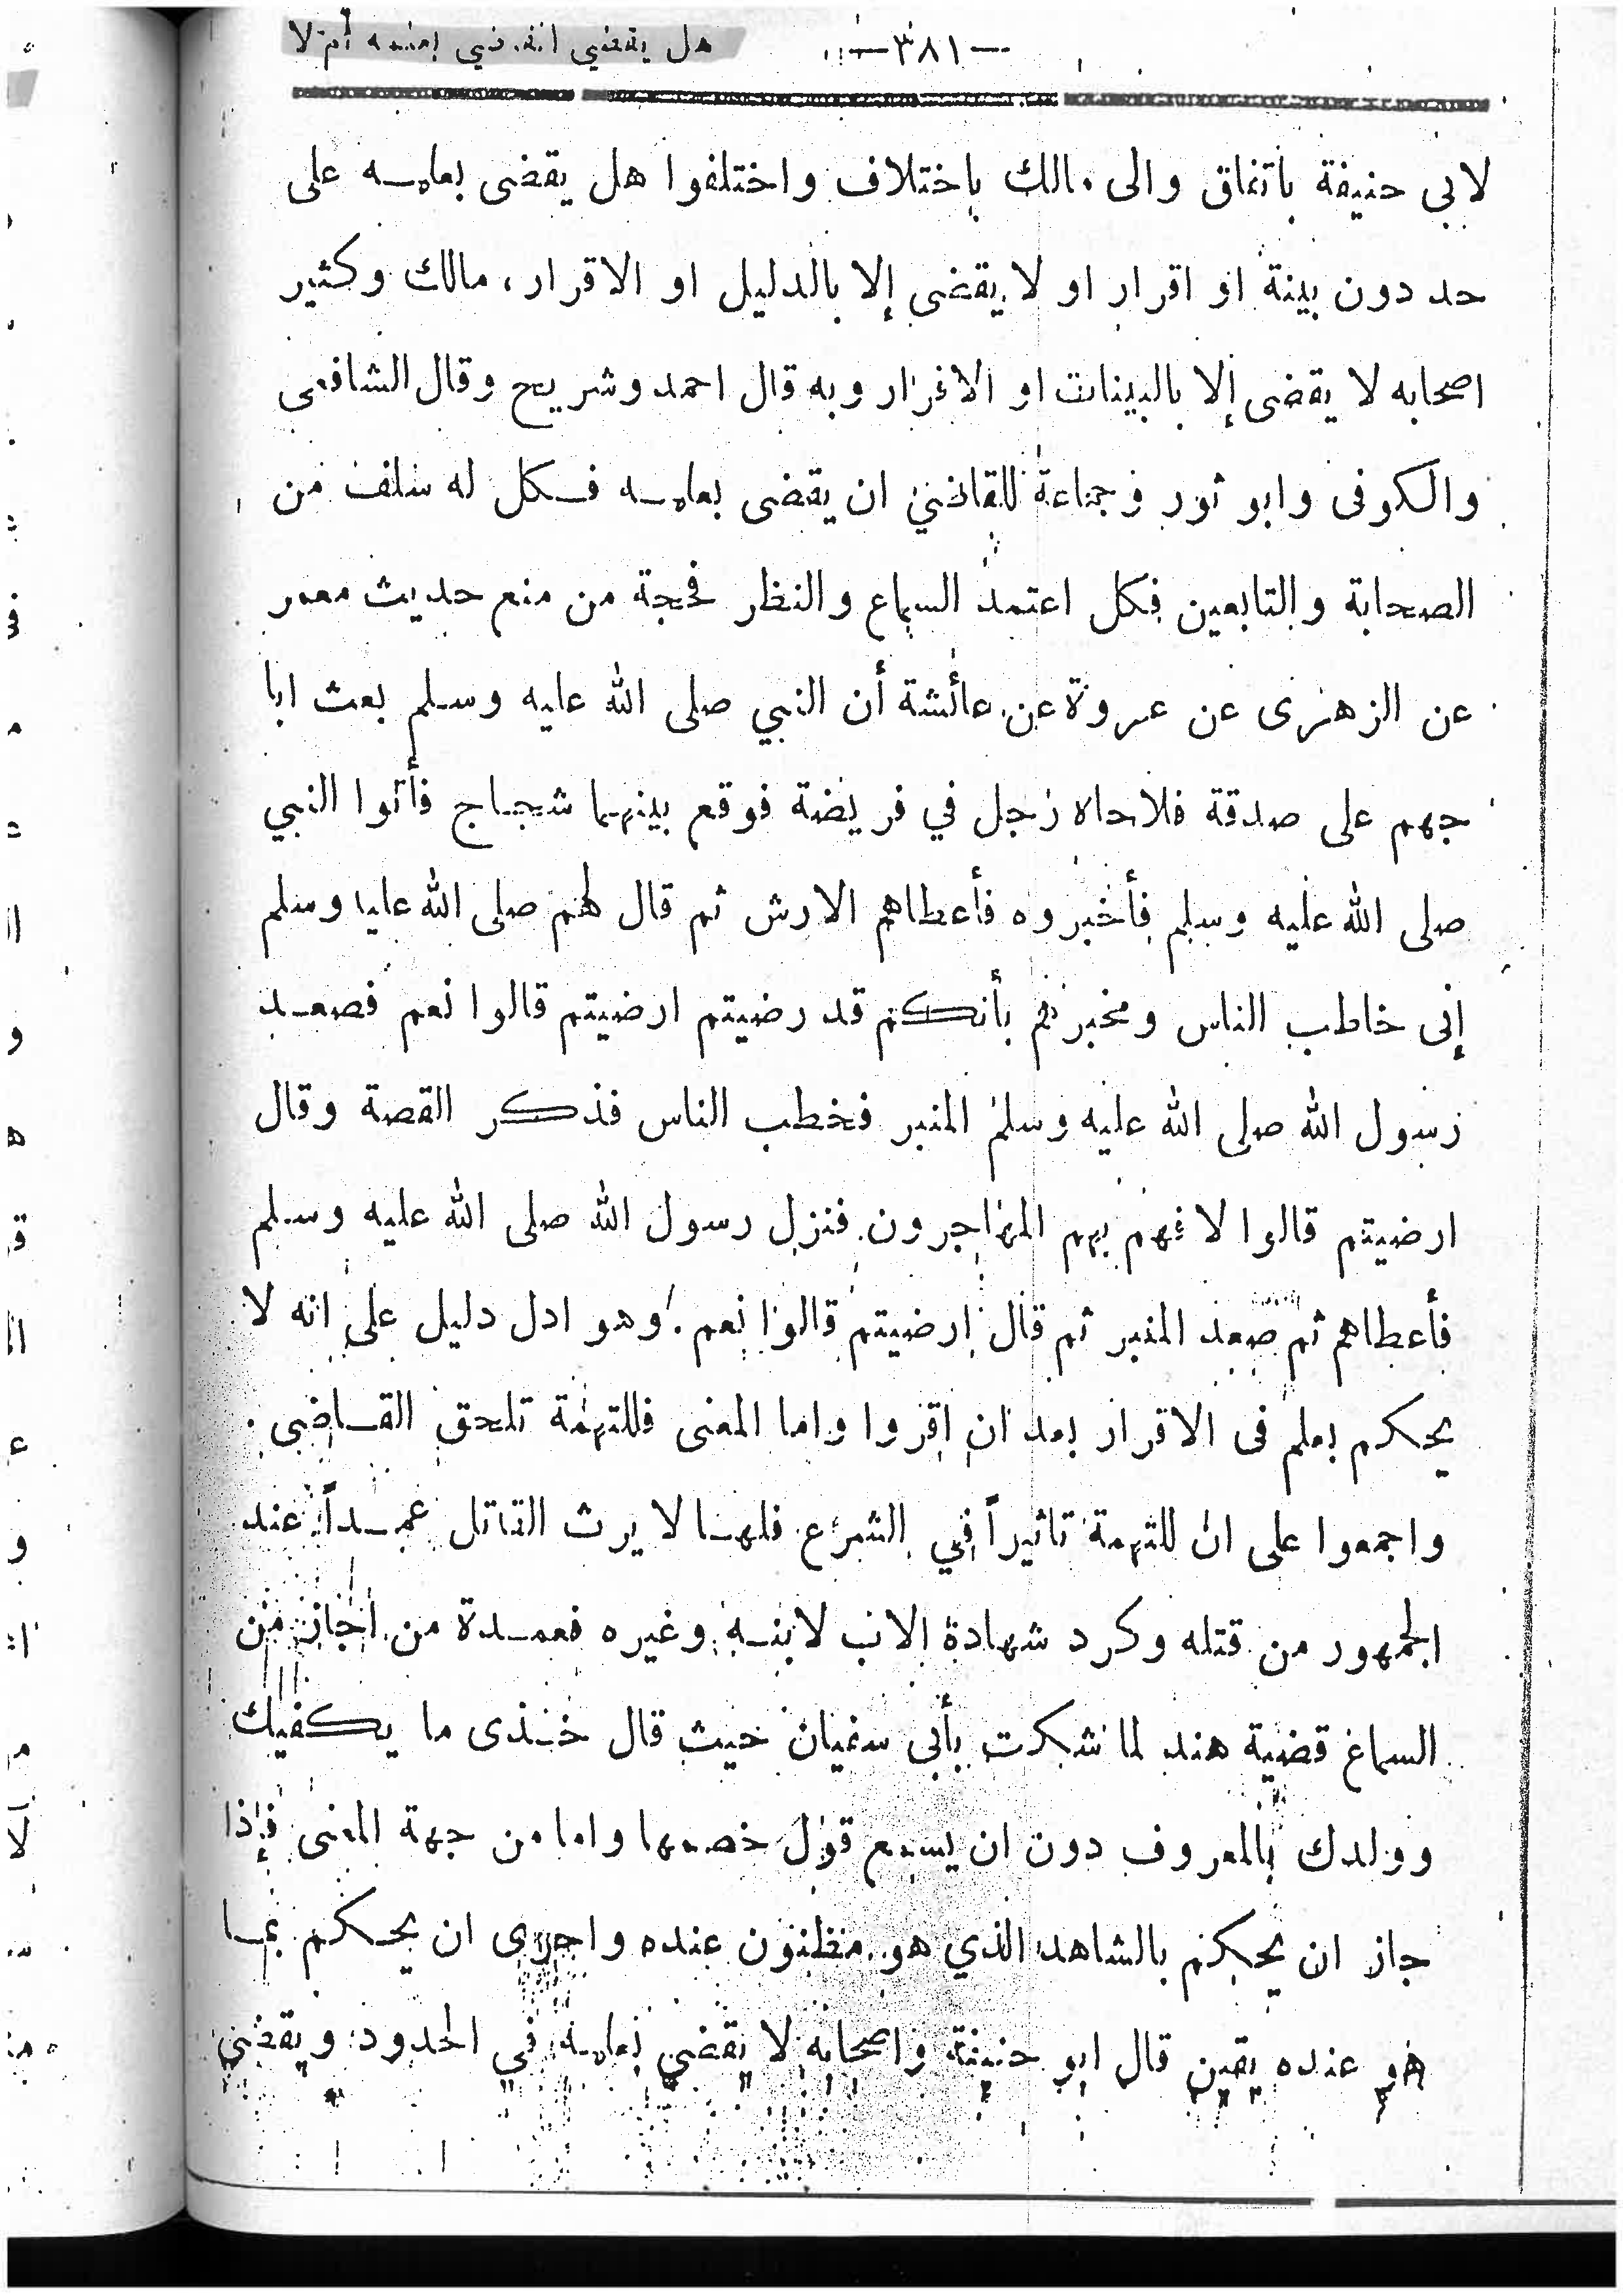 —٣٨١—
هل يقضي القاضي بعلمه أم لا
لابى حنيفة باتفاق والى مالك باختلاف واختلفوا هل يقضى بعلمه على
حد دون بينة او اقرار او لا يقضى إلا بالدليل او الاقرار ، مالك وكثير
اصحابه لا يقضى إلا بالبينات او الاقرار وبه قال احمد وشريح وقال الشافعى
والكوفى وابو ثور وجماعة للقاضى ان يقضى بعلمه فكل له سلف من
الصحابة والتابعين فكل اعتمد السماع والنظر فحجة من منع حديث معمر
عن الزهرى عن عروة عن عائشة أن النبي صلى الله عليه وسلم بعث ابا
جهم على صدقة فلاحاه رجل في فريضة فوقع بينهما شجاج فأتوا النبي
صلى الله عليه وسلم فأخبروه فأعطاهم الارش ثم قال لهم صلى الله عليا وسلم
إنى خاطب الناس ومخبرهم بأنكم قد رضيتم ارضيتم قالوا نعم فصعد
رسول الله صلى الله عليه وسلم المنبر فخطب الناس فذكر القصة وقال
ارضيتم قالوا لا فهم بهم المهاجرون فنزل رسول الله صلى الله عليه وسلم
فأعطاهم ثم صعد المنبر ثم قال ارضيتم قالوا نعم . وهو ادل دليل على انه لا
يحكم بعلم فى الاقرار بعد ان اقروا واما المعنى فللتهمة تلحق القاضى .
واجمعوا على ان للتهمة تاثيراً في الشرع فلهذا لا يرث القاتل عمداً عند
الجمهور من قتله وكرد شهادة الاب لابنه وغيره فعمدة من اجاز من
السماع قضية هند لما شكرت بأبى سفيان حيث قال خذى ما يكفيك
وولدك بالمعروف دون ان يسمع قول خصمها واما من جهة المعنى فإذا
جاز ان يحكم بالشاهد الذي هو مظنون عنده واحرى ان يحكم بما
هو عنده يقين قال ابو حنيفة واصحابه لا يقضي بعلمه في الحدود ويقضي